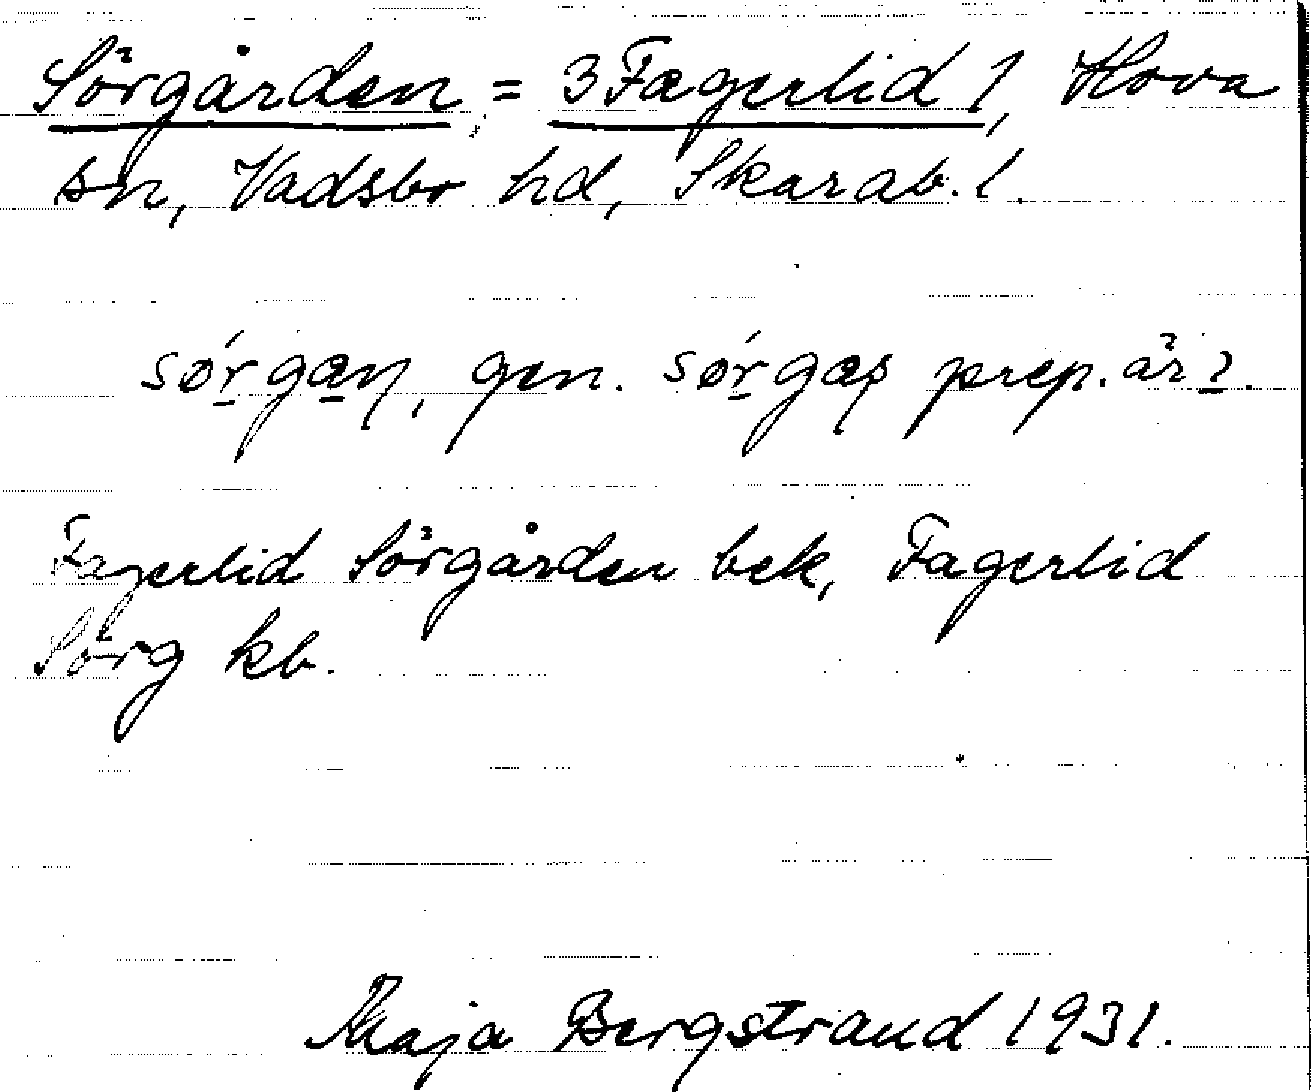 Sörgården = 3 Fagerlid 1, Hova
sn, Vadsbo hd, Skarab. l.
sørgan, gen. sørgas prep. är?.
Fagerlid Sörgården bek, Fagerlid
Sörg kb.
Maja Bergstrand 1931.